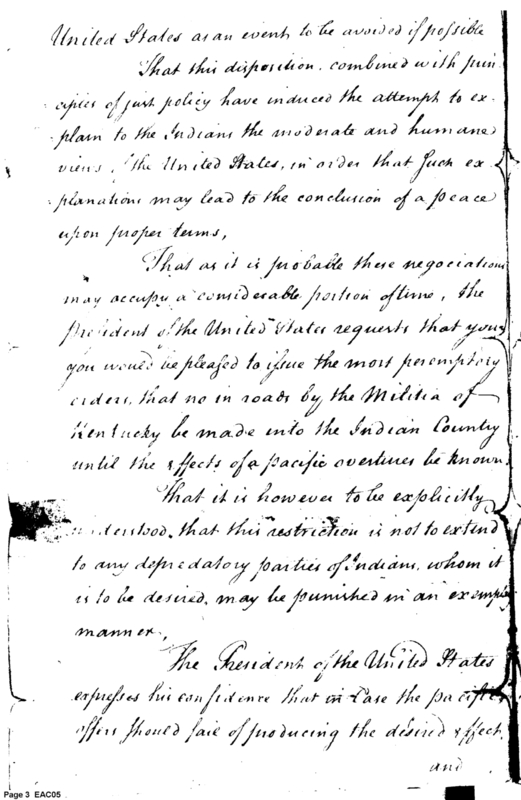 United States as an event to be avoided if possible
That this disposition, combined with prin-
ciples of just policy have induced the attempt to ex-
plain to the Indians the moderate and humane
views of the United States, in order that such ex
planations may lead to the conclusion of a peace
upon proper terms,
That as it is probable these negociations
may occupy a considerable portion of time, the
President of the United States requests that you
you would be pleased to issue the most peremptory
orders, that no in roads by the Militia of
Kentucky be made into the Indian Country
until the effects of a pacific overtures be known.
That it is however to be explicitly
understood, that this restriction is not to extend
to any depredatory parties of Indians, whom it
is to be desired, may be punished in an exemplary
manner,
The President of the United States
expresses his confidence that in Case the pacific
offers should fail of producing the desired effect,
and
Page 3 EAC05